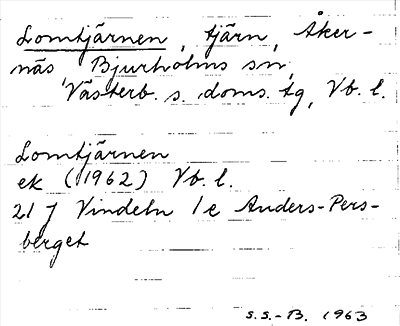 Lomtjärnen, tjärn, Åker-
näs, Bjurholms sn,
Västerb. s. doms. tg, Vb. l.
Lomtjärnen
ek (1962) Vb. l.
21 J Vindeln 1 e Anders-Pers-
berget
S.S.-B. 1963